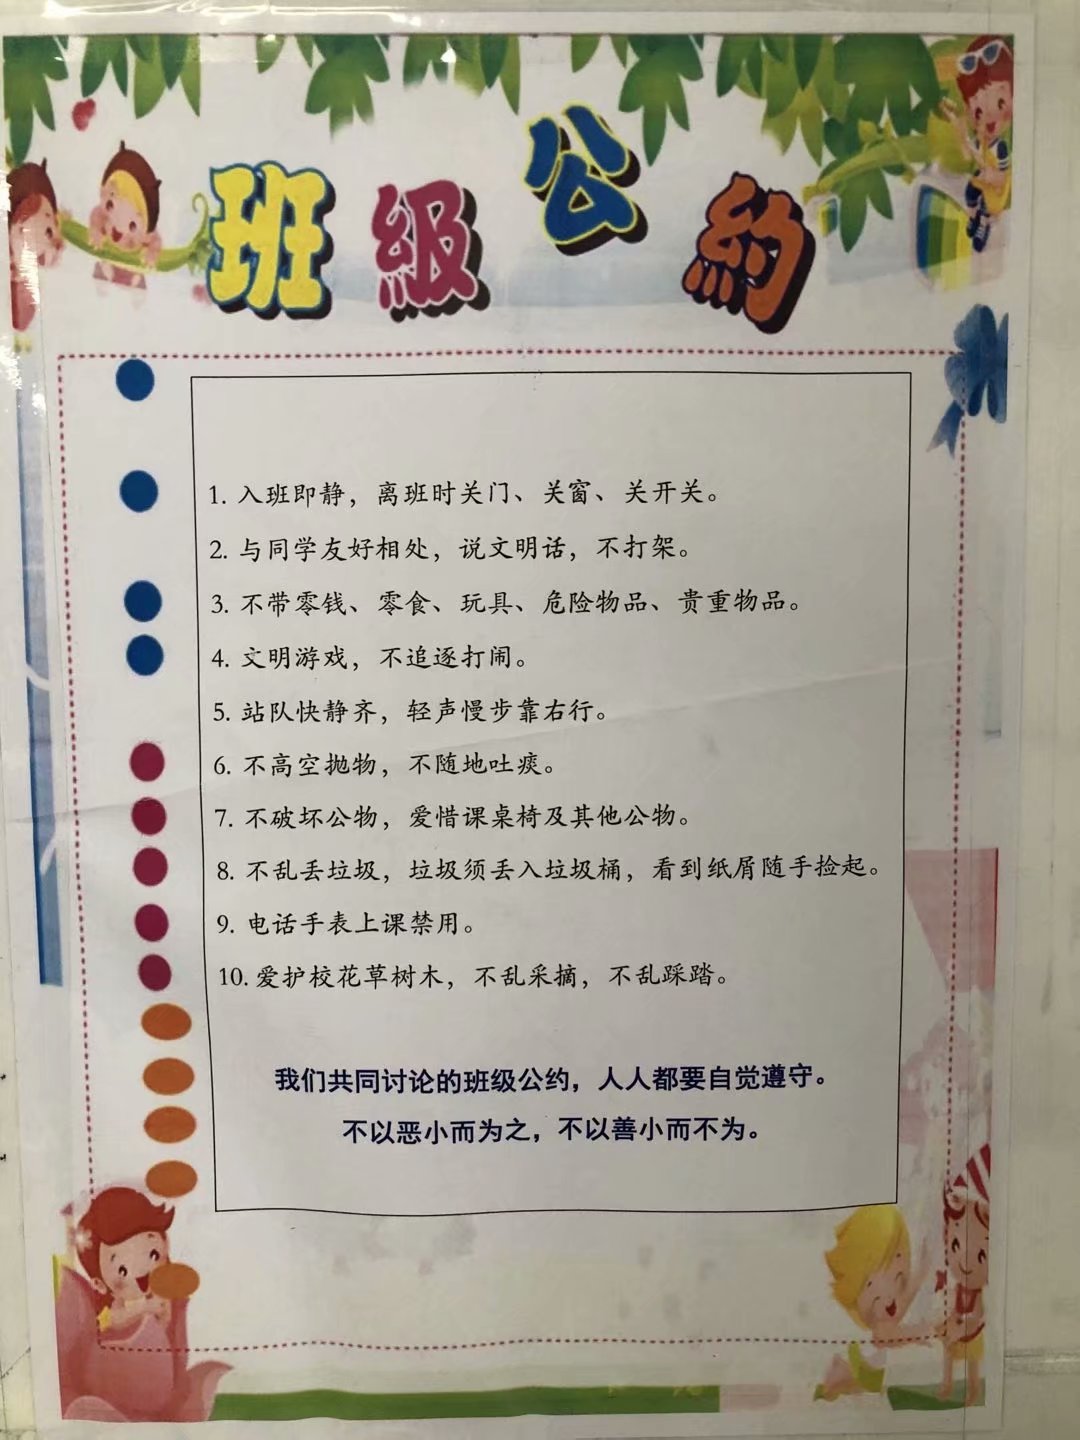 班級公約
1. 入班即静，离班时关门、关窗、关开关。
2. 与同学友好相处，说文明话，不打架。
3. 不带零钱、零食、玩具、危险物品、贵重物品。
4. 文明游戏，不追逐打闹。
5. 站队快静齐，轻声慢步靠右行。
6. 不高空抛物，不随地吐痰。
7. 不破坏公物，爱惜课桌椅及其他公物。
8. 不乱丢垃圾，垃圾须丢入垃圾桶，看到纸屑随手捡起。
9. 电话手表上课禁用。
10. 爱护校花草树木，不乱采摘，不乱踩踏。
我们共同讨论的班级公约，人人都要自觉遵守。
不以恶小而为之，不以善小而不为。